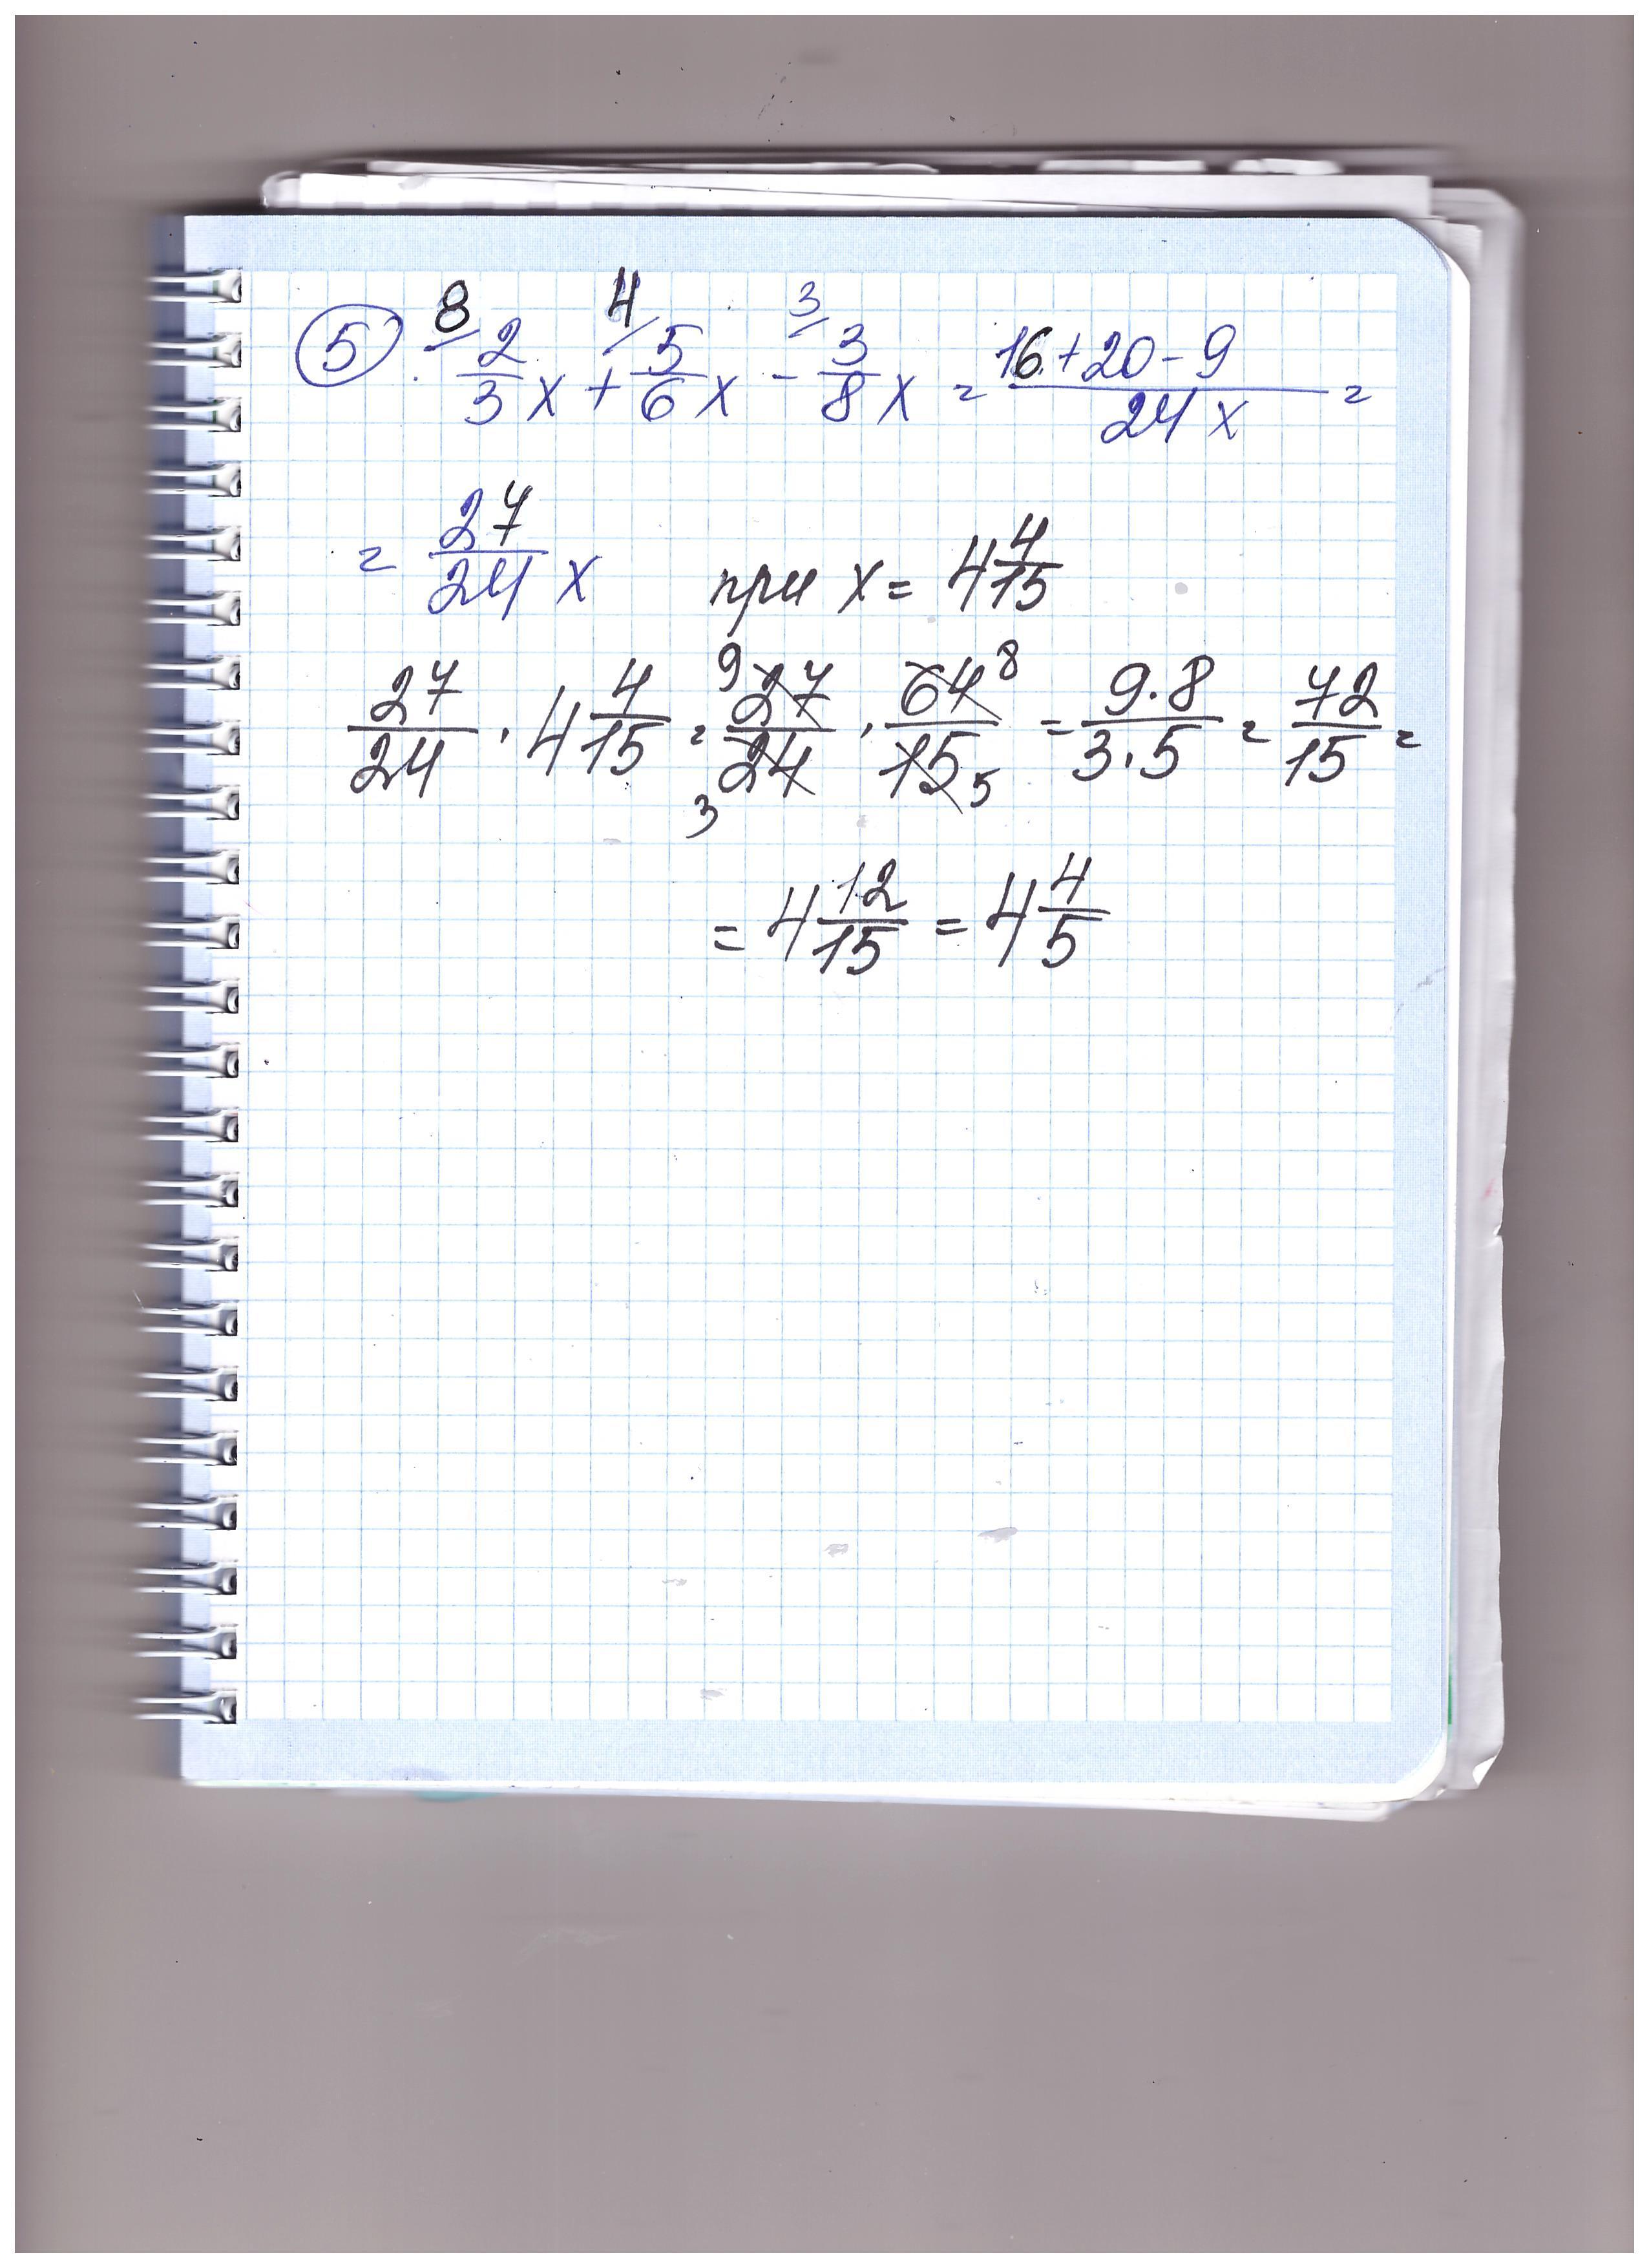 ⑤ 8/ 2/3 x + 4/ 5/6 x - 3/ 3/8 x = (16+20-9)/(24 x) =
= 27/24 x при x = 4 4/15
27/24 · 4 4/15 = 9 27/24 3 · 64 8/15 5 = 9·8/3·5 = 72/15 =
= 4 12/15 = 4 4/5